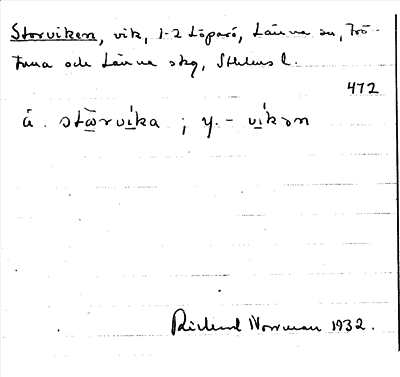 Storviken, vik, 1-2 Löparö, Länna sn, Frö-
tuna och Länna skg, Sthlms l.
472
ä. stàrvíka ; y. - víkən
Rickard Norrman 1932.